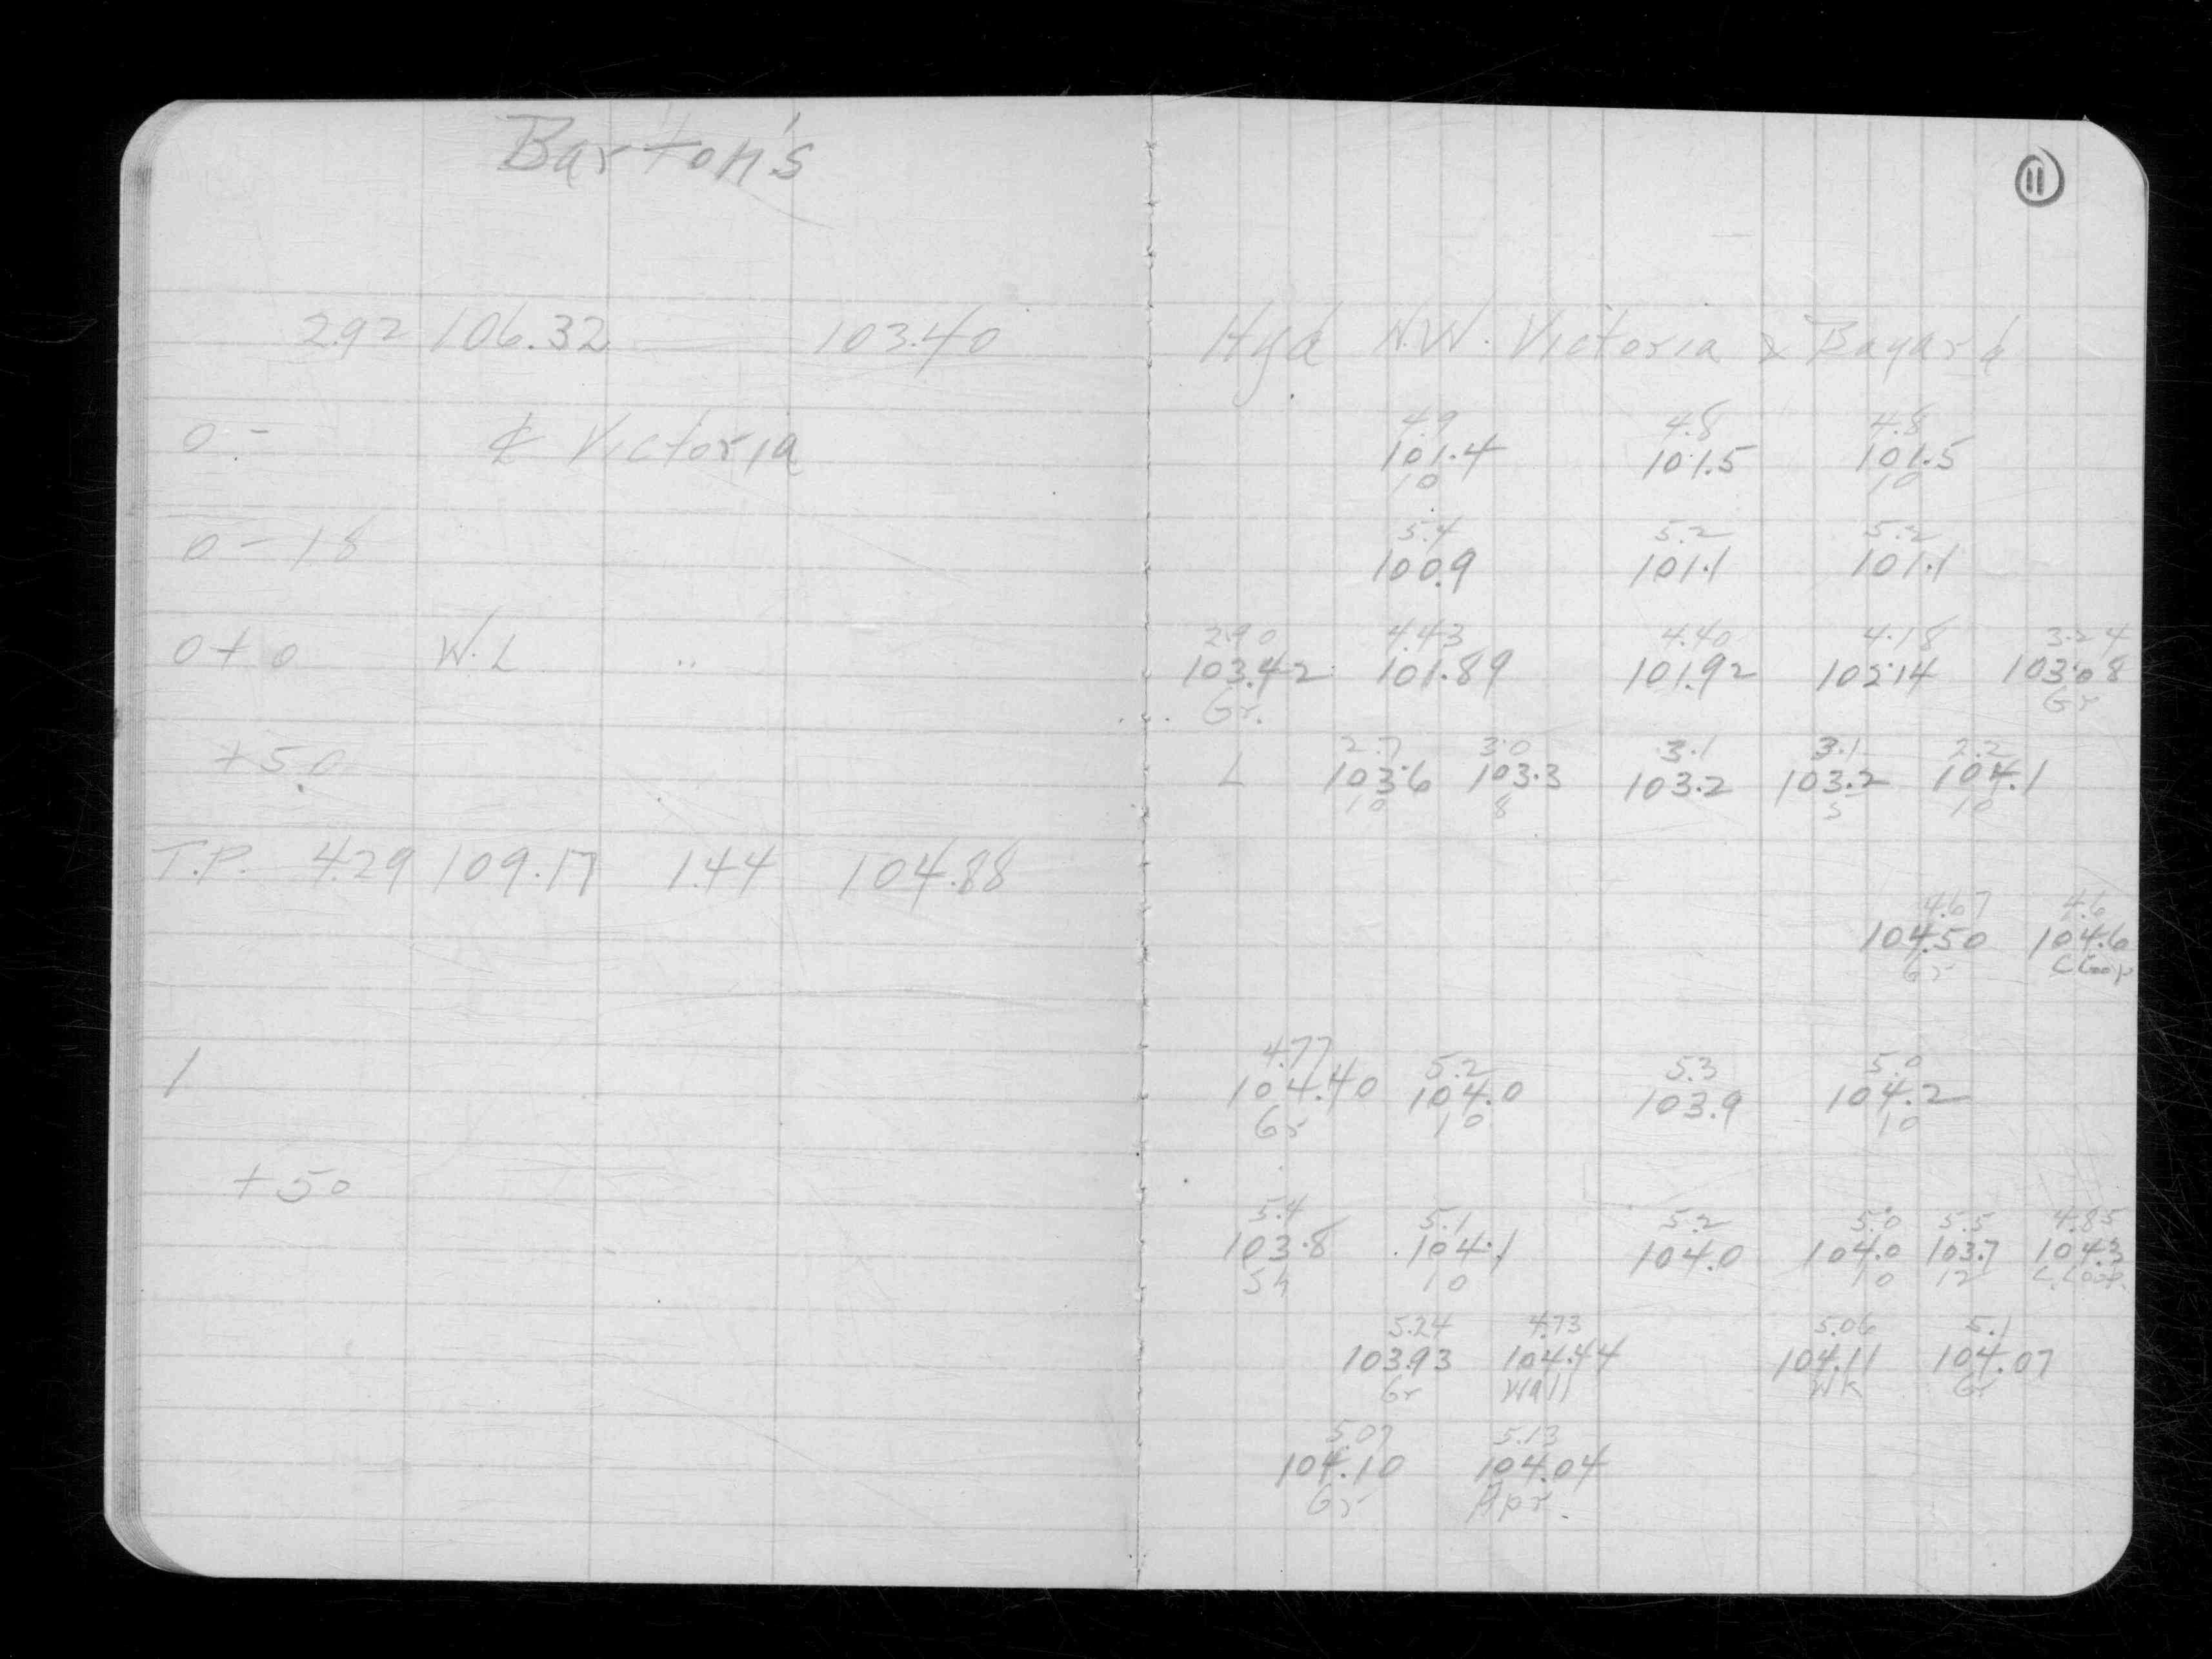 Barton's
11
2.92 106.32 103.40 Hyd N.W. Victoria & Bayard
4.9 4.8 4.8
0 - ℄ Victoria 101.4 101.5 101.5
10 10
5.4 5.2 5.2
0 - 18 100.9 101.1 101.1
2.90 4.43 4.40 4.18 3.24
0 + 0 W.L " 103.42 101.89 101.92 102.14 103.08
Gr. Gr
2.7 3.0 3.1 3.1 2.2
+50 L 103.6 103.3 103.2 103.2 104.1
10 8 5 10
T.P. 4.29 109.17 1.44 104.88
4.67 4.6
104.50 104.6
Gr C Coop
4.77 5.2 5.3 5.0
1 104.40 104.0 103.9 104.2
Gr 10 10
+50
5.4 5.1 5.2 5.0 5.5 4.85
103.8 104.1 104.0 104.0 103.7 104.3
Sh 10 10 12 C.Coop.
5.24 4.73 5.06 5.1
103.93 104.44 104.11 104.07
Gr Wall Wk Gr
5.07 5.13
104.10 104.04
Gr Apr.